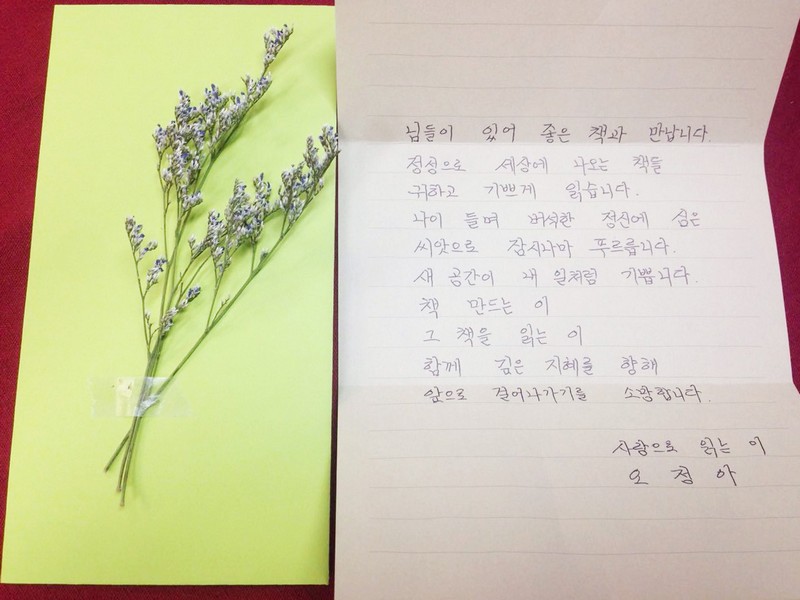 님들이 있어 좋은 책과 만납니다.
정성으로 세상에 나오는 책들
귀하고 기쁘게 읽습니다.
나이 들며 버석한 정신에 심은
씨앗으로 잠시나마 푸르릅니다.
새 공간이 내 일처럼 기쁩니다.
책 만드는 이
그 책을 읽는 이
함께 깊은 지혜를 향해
앞으로 걸어나가기를 소망합니다.
사랑으로 읽는 이
오 정 아